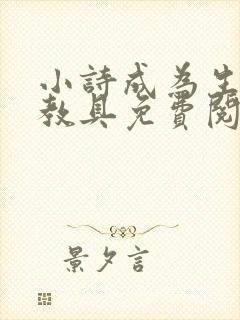 小詩成為生
教具免費閱
景夕言